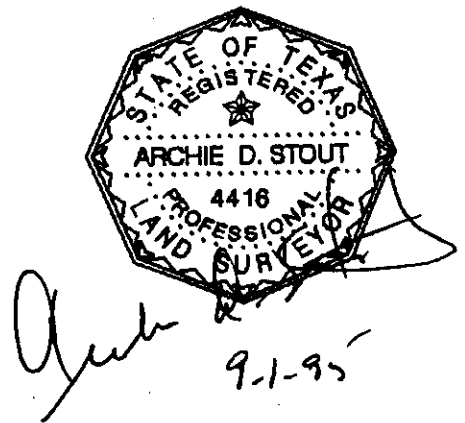 STATE OF TEXAS
REGISTERED
ARCHIE D. STOUT
4416
PROFESSIONAL
LAND SURVEYOR
9-1-95